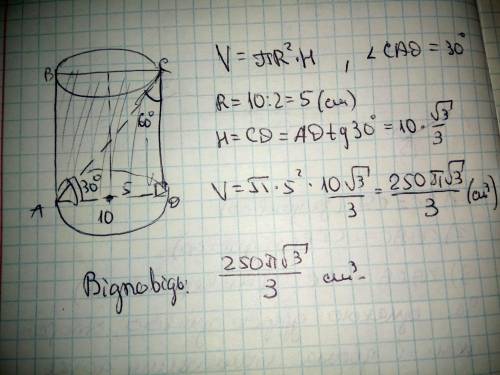 B C
60°
30° 5
A D
10
V = πR²·H , ∠CAD = 30°
R = 10:2 = 5 (см)
H = CD = AD tg 30° = 10·√3/3
V = π·5²·10√3/3 = 250π√3/3 (см³)
Відповідь: 250π√3/3 см³.